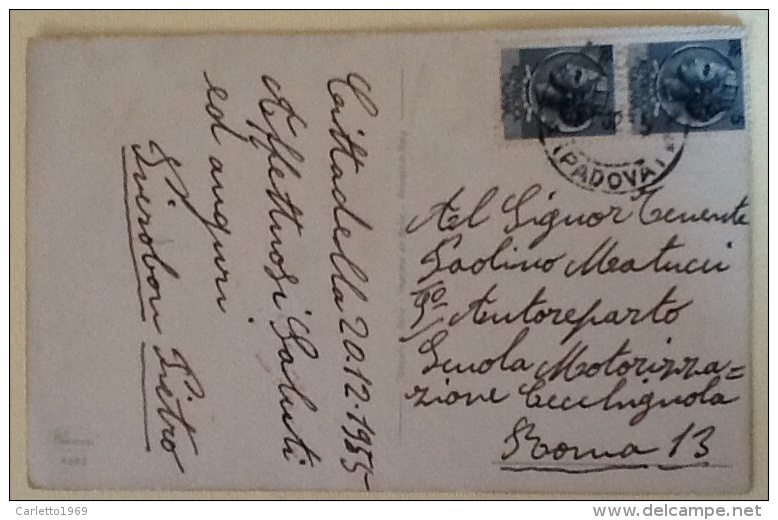 Cittadella 20.12.1955
Affettuosi Saluti
ed auguri.
Pietro
(PADOVA)
Al Signor Tenente
Paolino Matucci
Autoreparto
Scuola Motorizza=
zione Cecchignola
Roma 13
4282
Carletto1969
delcampe.net